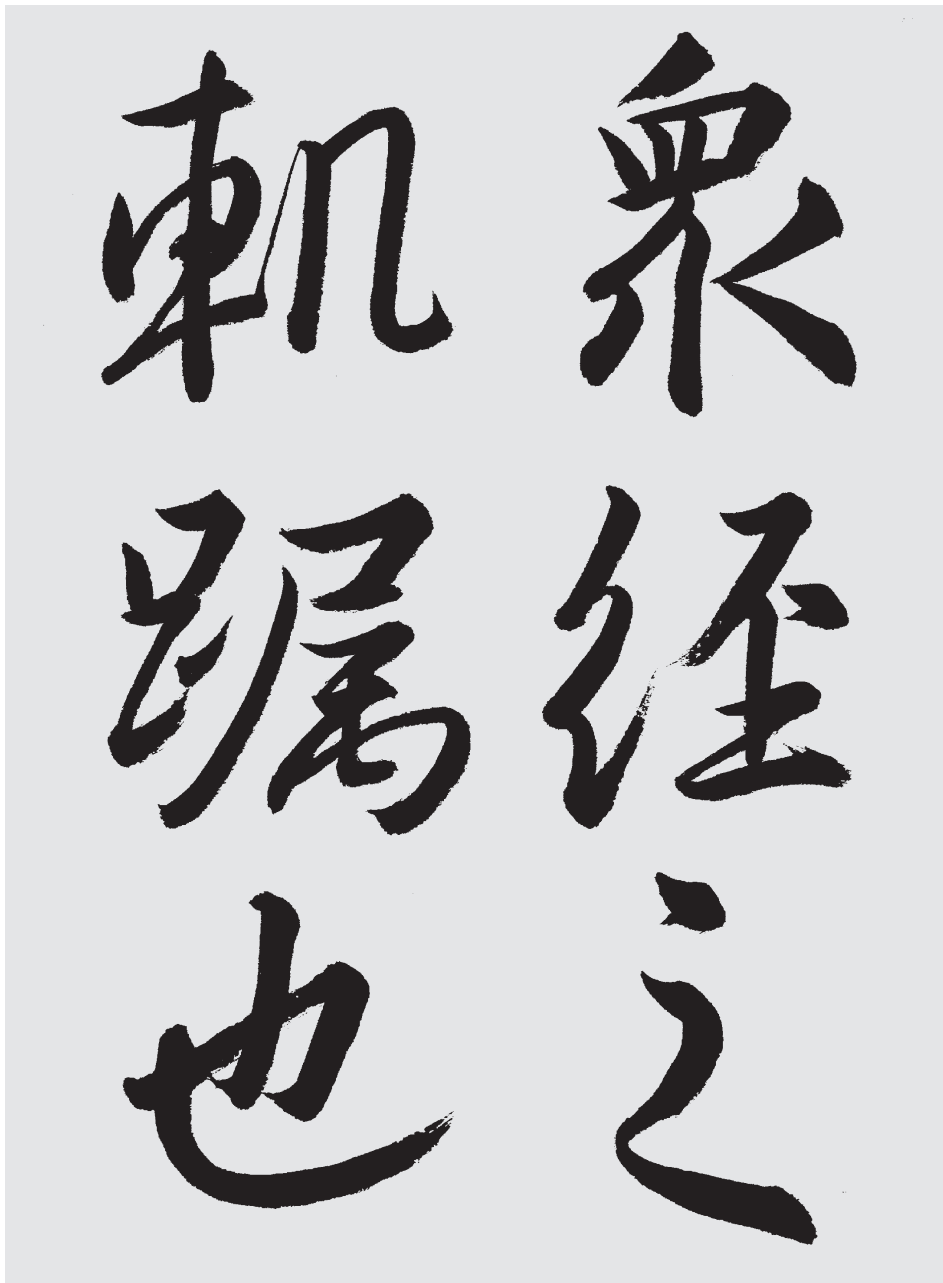 衆經之
軌躅也